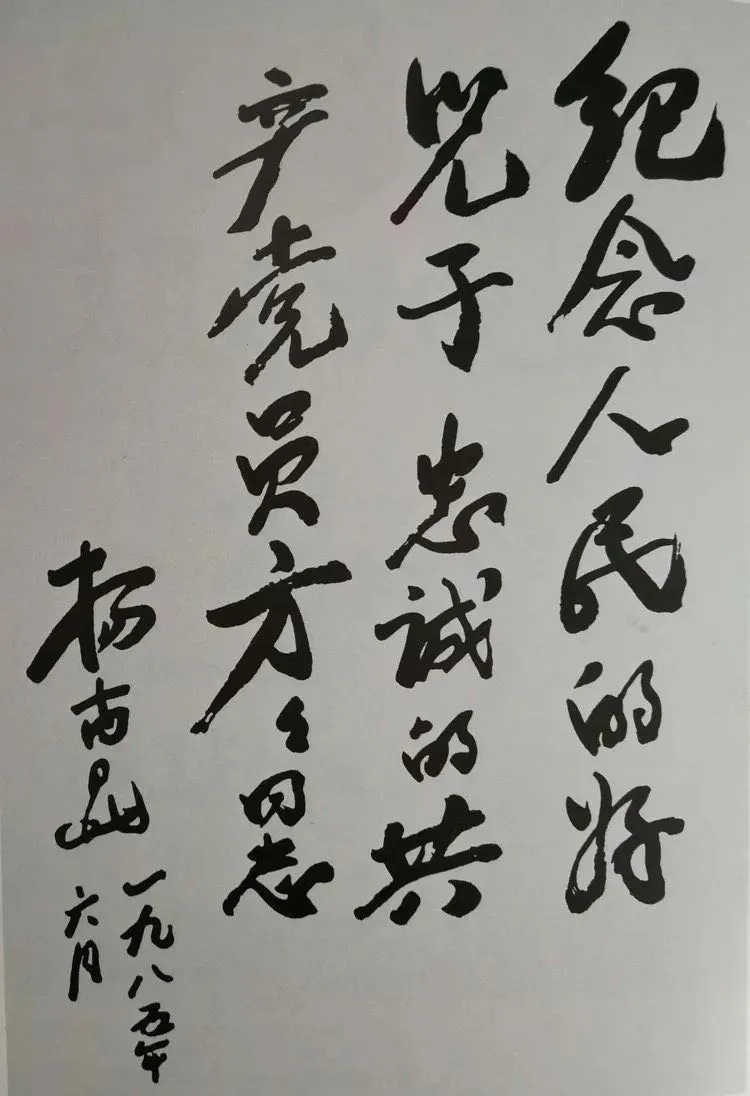 纪念人民的好
兒子 忠诚的共
产党员方々同志
杨尚昆
一九八五年
六月